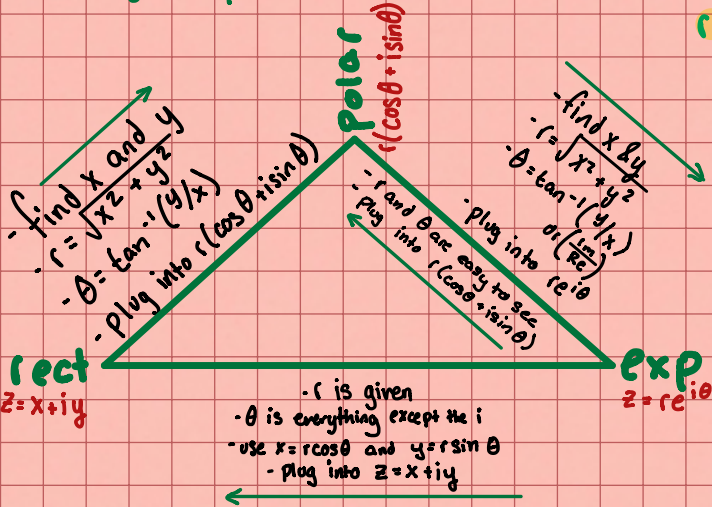 polar
r(cosθ + isinθ)
- find x and y
- r = √x² + y²
- θ = tan⁻¹ (y/x)
- Plug into r(cosθ + isinθ)
- find x & y
- r = √x² + y²
- θ = tan⁻¹ (y/x)
or (Im/Re)
- plug into re^iθ
- r and θ are easy to see
- plug into r(cosθ + isinθ)
rect
z = x + iy
exp
z = re^iθ
- r is given
- θ is everything except the i
- use x = rcosθ and y = rsin θ
- plug into z = x + iy